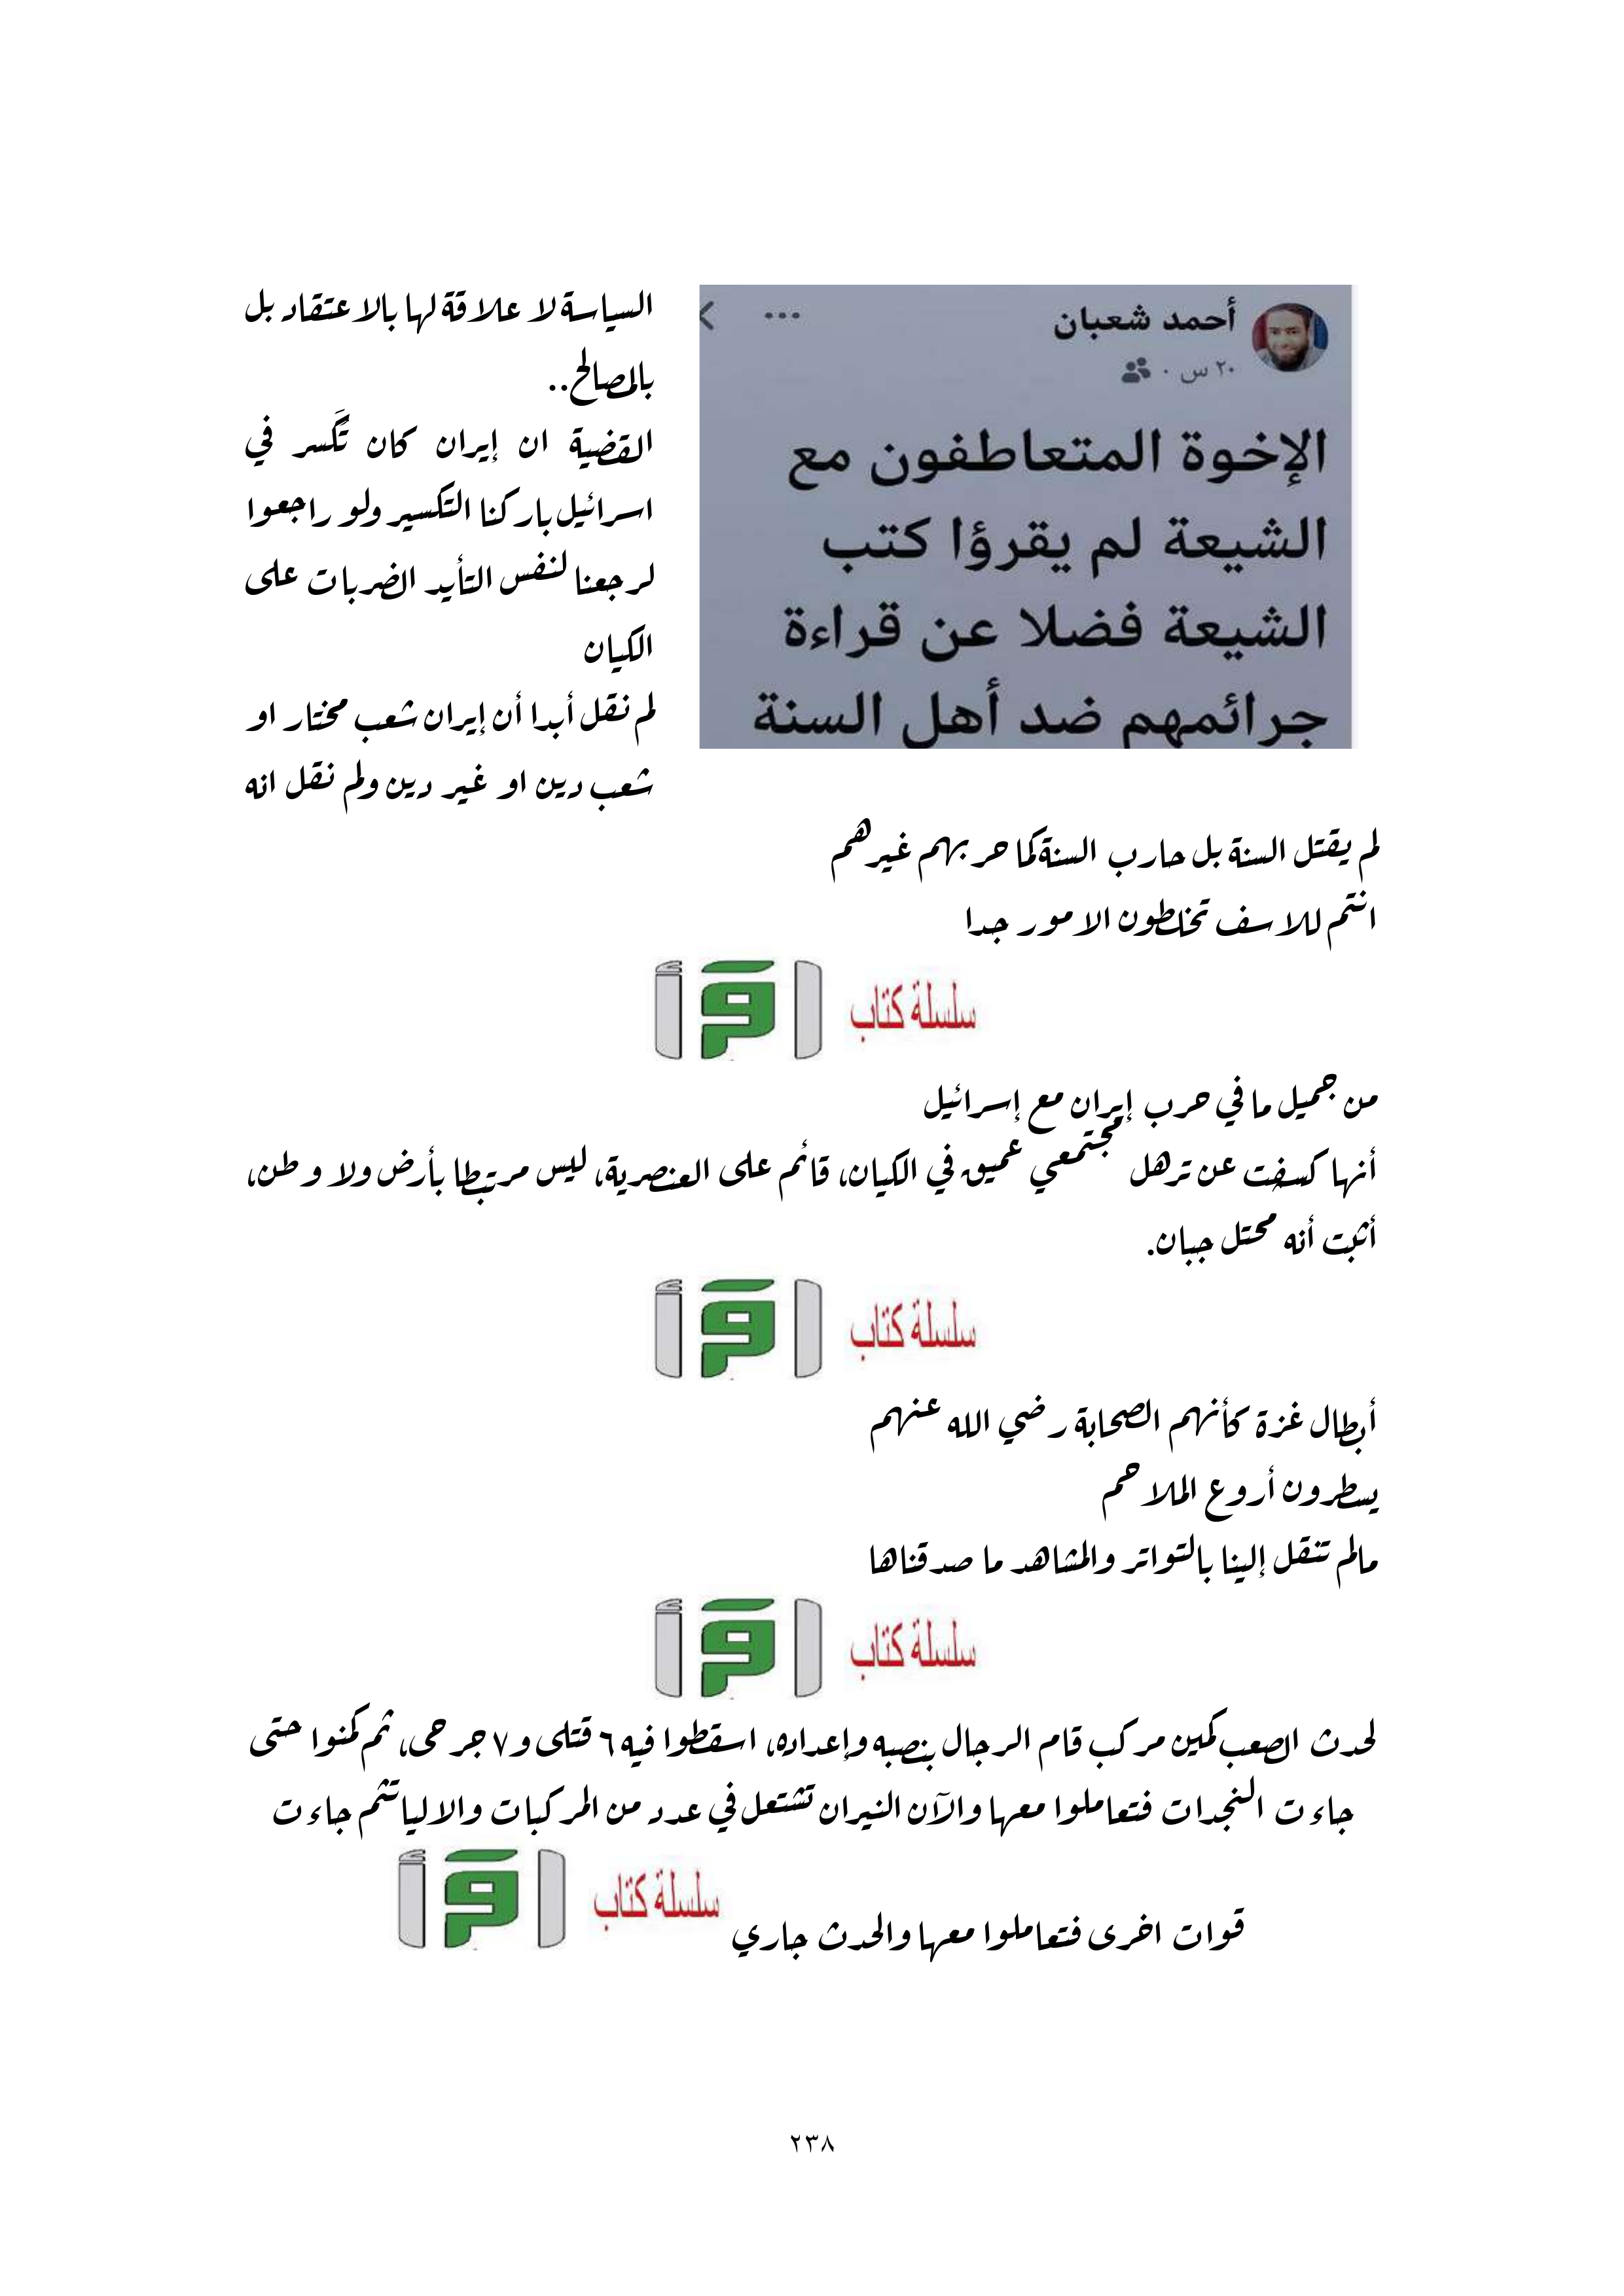 أحمد شعبان
٢٠ س ·
الإخوة المتعاطفون مع
الشيعة لم يقرؤا كتب
الشيعة فضلا عن قراءة
جرائمهم ضد أهل السنة
السياسة لا علاقة لها بالاعتقاد بل
بالمصالح..
القضية ان إيران كان تَكَسر في
اسرائيل باركنا التكسير ولو راجعوا
لرجعنا لنفس التأيد الضربات على
الكيان
لم نقل أبدا أن إيران شعب مختار او
شعب دين او غير دين ولم نقل انه
لم يقتل السنة بل حارب السنة كما حربهم غيرهم
انتم للاسف تخلطون الامور جدا
سلسلة كتاب اقرأ
من جميل ما في حرب إيران مع إسرائيل
أنها كسفت عن ترهل مجتمعي عميق في الكيان، قائم على العنصرية، ليس مرتبطا بأرض ولا وطن،
أثبت أنه محتل جبان.
سلسلة كتاب اقرأ
أبطال غزة كأنهم الصحابة رضي الله عنهم
يسطرون أروع الملاحم
مالم تنقل إلينا بالتواتر والمشاهد ما صدقناها
سلسلة كتاب اقرأ
لحدث الصعب كمين مركب قام الرجال بنصبه وإعداده، اسقطوا فيه ٦ قتلى و٧ جرحى، ثم كمنوا حتى
جاءت النجدات فتعاملوا معها والآن النيران تشتعل في عدد من المركبات والالياتثم جاءت
قوات اخرى فتعاملوا معها والحدث جاري سلسلة كتاب اقرأ
٢٣٨